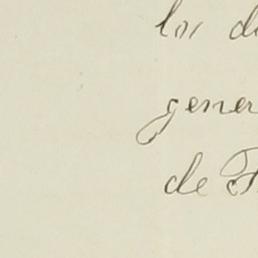 los di
gener
de F